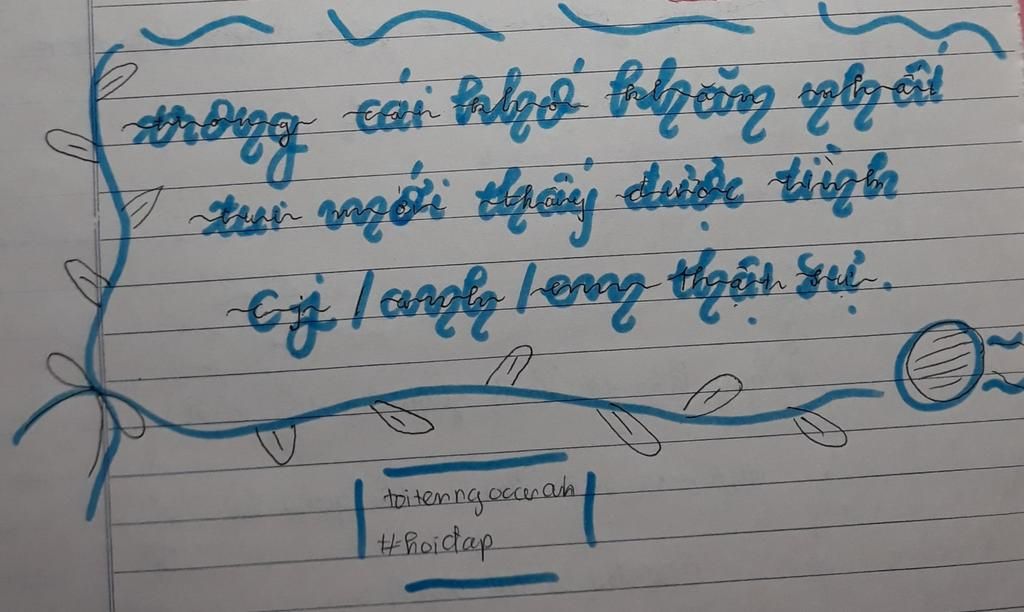 trong cái khó khăn nhất
tui mới thấy được tình
cj / anh / em thật sự.
toitenngoccerah
#hoidap